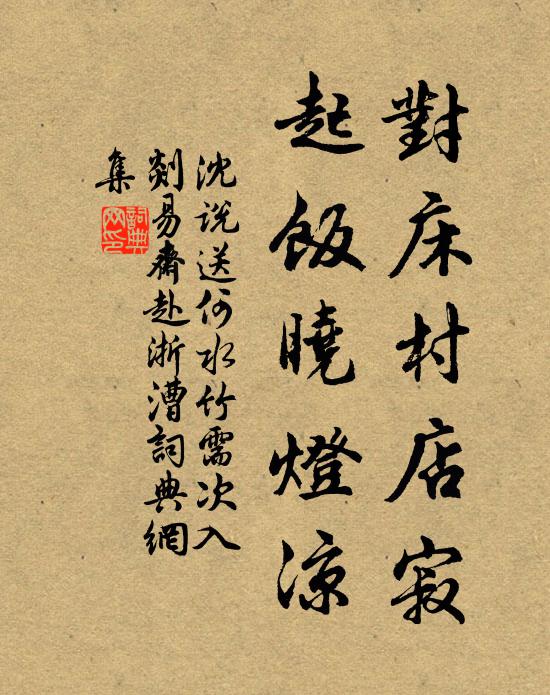 對床村店寂
起飯曉燈涼
沈說送何水竹需次入
剡易齋赴浙漕詞典網
集
詞典網印